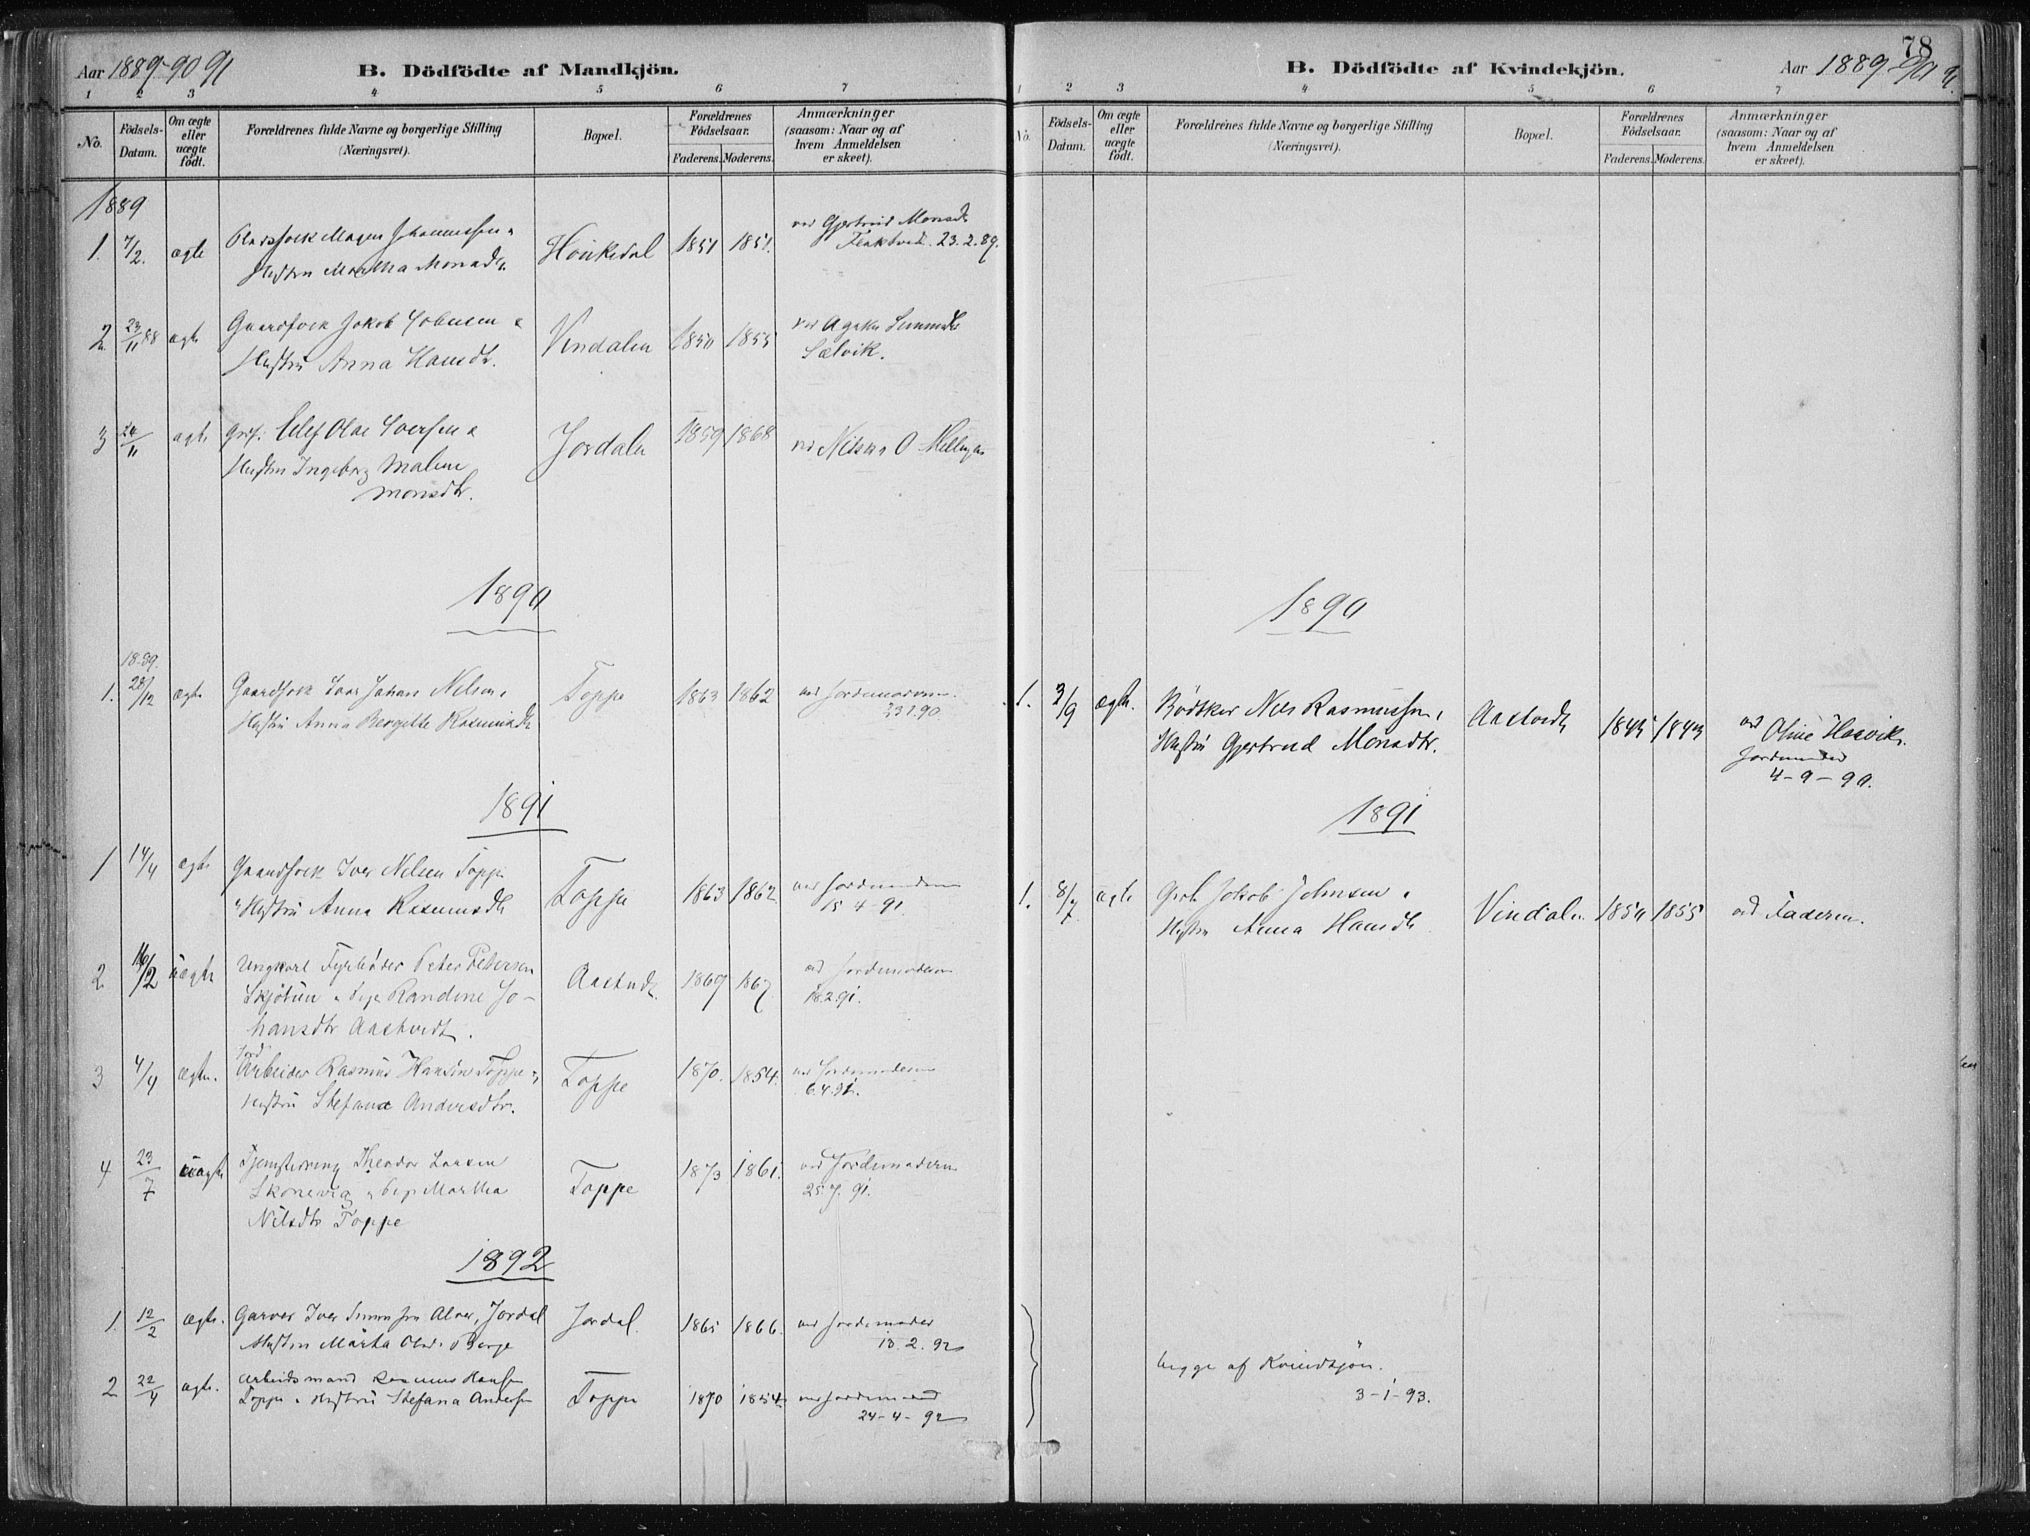 Aar 1889-90 91
B. Dödfödte af Mandkjön.
1 2 3 4 5 6 7
No.
Födsels-
Datum.
Om ægte
eller
uægte
født.
Forældrenes fulde Navne og borgerlige Stilling
(Næringsvei).
Bopæl.
Forældrenes
Födselsaar.
Faderens. Moderens.
Anmærkninger
(saasom: Naar og af
hvem Anmeldelsen
er skeet).
1889
1. 7/2. ægte Magnus Johannessen
Hustru Martha Monsdtr.
1851 1851.
ved Gjertrud Monsdtr
23.2.89.
2 23/11 88 ægte Gaardbr. Jakob Johnsen &
Hustru Anna Hansdtr.
Vindalen 1850 1855
3 24/11 ægte Elef Olai Iversen &
Hustru Ingeborg Maline
Monsdtr.
Jordalen 1859 1868
1890
18-89.
1. 28/12 ægte Iver Johan Nilsen
Hustru Anna Bergitte Rasmusdtr
Toppe 1863 1862 ved Jordemoderen.
23.1.90
1891
1 14/4 ægte Iver Nilsen Toppe
Hustru Anna Rasmusdtr
Toppe 1863 1862 ved Jordemoderen
15-4-91
2 16/2 uægte Ungkarl Fyrbøder Peter Petersen
Randine Jo-
hansdtr Aastvedt.
1869 1867 ved Jordemoderen
18.2.91.
3 4/4 ægte. Arbeider Rasmus Hansen Toppe
Hustru Stefana Andersdtr.
Toppe 1870. 1854. ved Jordemoderen
6.4.91.
4 23/7 uægte Theodor Larsen
Skonevig & Pige Martha
Nilsdtr Toppe
Toppe 1873 1861. ved Jordemoderen
25.7.91.
1892
1. 12/2 ægte. Garver Iver Alver, Jordal
Hustru Märta Berge
Jordal. 1865 1866. ved Jordemoder
13.2.92
2 22/4 ægte. Arbeidsmand Rasmus Hansen
Toppe & Hustru Stefana Andersen
Toppe 1870 1854. ved Jordemoder
24-4-92
78
B. Dödfödte af Kvindekjön.
Aar 1889-90 91.
1 2 3 4 5 6 7
No.
Födsels-
Datum.
Om ægte
eller
uægte
født.
Forældrenes fulde Navne og borgerlige Stilling
(Næringsvei).
Bopæl.
Forældrenes
Födselsaar.
Faderens. Moderens.
Anmærkninger
(saasom: Naar og af
hvem Anmeldelsen
er skeet).
1890
1. 3/9 ægte. Bödtker Nils Rasmussen,
Hustru Gjertrud Monsdtr.
Aastvedt ved
Oline
Jordemoder
4-9-90.
1891
1. 8/7 ægte Jakob Johnsen &
Hustru Anna Hansdtr
Vindalen 1850 1855 ved Faderen.
begge af Kvindkjön.
3-1-93.